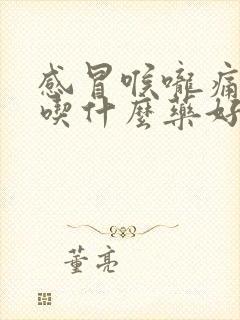 感冒喉嚨痛
喫什麼藥好
董亮